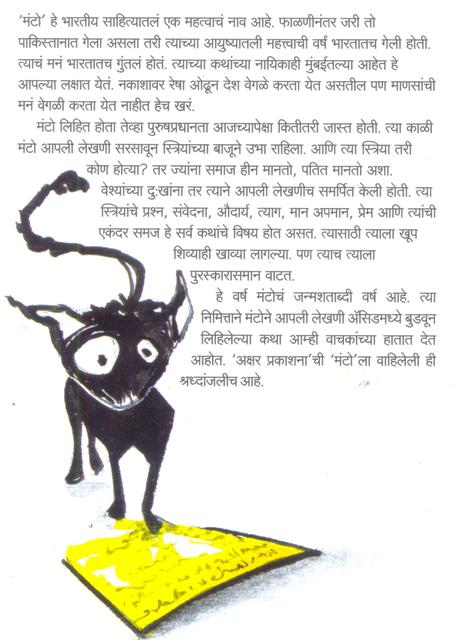 ‘मंटो’ हे भारतीय साहित्यातलं एक महत्वाचं नाव आहे. फाळणीनंतर जरी तो
पाकिस्तानात गेला असला तरी त्याच्या आयुष्यातली महत्त्वाची वर्षं भारतातच गेली होती.
त्याचं मनं भारतातच गुंतलं होतं. त्याच्या कथांच्या नायिकाही मुंबईतल्या आहेत हे
आपल्या लक्षात येतं. नकाशावर रेषा ओढून देश वेगळे करता येत असतील पण माणसांची
मनं वेगळी करता येत नाहीत हेच खरं.
मंटो लिहित होता तेव्हा पुरुषप्रधानता आजच्यापेक्षा कितीतरी जास्त होती. त्या काळी
मंटो आपली लेखणी सरसावून स्त्रियांच्या बाजूने उभा राहिला. आणि त्या स्त्रिया तरी
कोण होत्या? तर ज्यांना समाज हीन मानतो, पतित मानतो अशा.
वेश्यांच्या दु:खांना तर त्याने आपली लेखणीच समर्पित केली होती. त्या
स्त्रियांचे प्रश्न, संवेदना, औदार्य, त्याग, मान अपमान, प्रेम आणि त्यांची
एकंदर समज हे सर्व कथांचे विषय होत असत. त्यासाठी त्याला खूप
शिव्याही खाव्या लागल्या. पण त्याच त्याला
पुरस्कारासमान वाटत.
हे वर्ष मंटोचं जन्मशताब्दी वर्ष आहे. त्या
निमित्ताने मंटोने आपली लेखणी ॲसिडमध्ये बुडवून
लिहिलेल्या कथा आम्ही वाचकांच्या हातात देत
आहोत. ‘अक्षर प्रकाशना’ची ‘मंटो’ला वाहिलेली ही
श्रध्दांजलीच आहे.